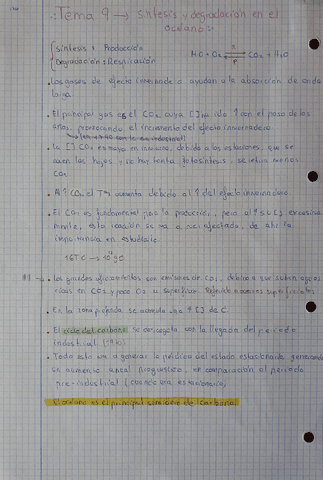 Tema 9 → síntesis y degradación en el
océano.
Síntesis: Producción
Degradación: Respiración
H2O + CO2 ⇄ CH2O + O2
· Los gases de efecto invernadero ayudan a la absorción de onda
larga.
· El principal gas es el CO2 cuya [] ha ido ↑ con el paso de los
años, provocando el incremento del efecto invernadero
· La [] CO2 es mayor en invierno, debido a las estaciones, que se
caen las hojas y no hay tanta fotosíntesis, se retira menos
CO2
· A ↑ CO2 el Tª aumenta debido al ↑ del efecto invernadero
· El CO2 es fundamental para la producción, pero al ↑ su [] excesiva
mente, esta reacción se va a ver afectada, de ahí la
importancia en estudiarlo.
· Los grandes afloramientos son emisores de CO2, debido a que suben aguas
ricas en CO2 y poco O2 a superficie.
· En la zona profunda se acumula una ↑ [] de C.
· El ciclo del carbono se desregula con la llegada del periodo
industrial
· Todo esto va a generar la pérdida del estado estacionario generando
un aumento anual progresivo, en comparación al periodo
pre-industrial (cuando era estacionario)
· El océano es el principal sumidero de carbono.